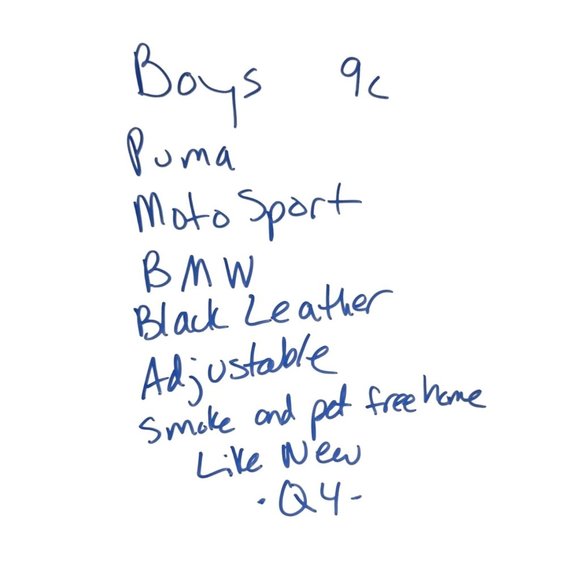 Boys 9c
Puma
Moto Sport
BMW
Black Leather
Adjustable
Smoke and pet free home
Like New
. Q4 -